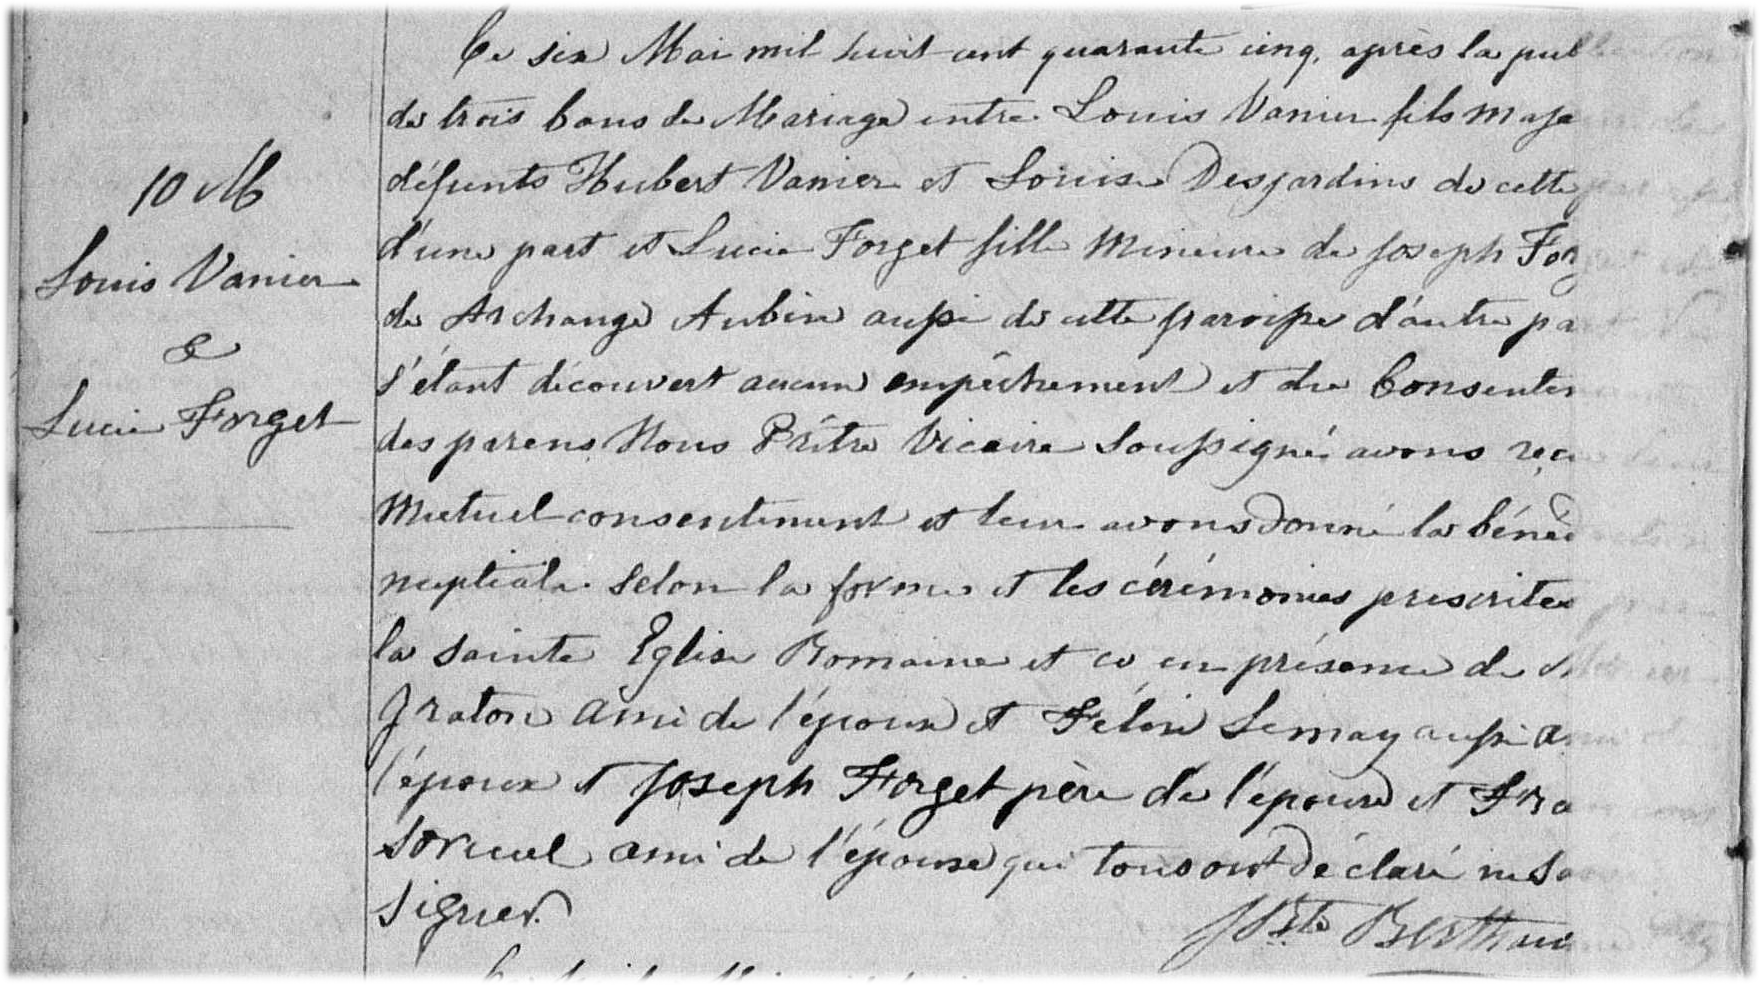 Ce six Mai mil huit cent quarante cinq, après la publication
de trois bans de Mariage entre Louis Vanier fils maje
10 M
défunts Hubert Vanier et Louise Desjardins de cette
d'une part et Lucie Forget fille Mineure de Joseph Forg
Louis Vanier
de Archange Aubin aussi de cette paroisse d'autre pa
&
s'étant découvert aucun empêchement et du Consentem
Lucie Forget
des parens Nous Prêtre Vicaire Soussigné avons reçu
Mutuel consentement et leur avons donné la bénéd
nuptiale selon la forme et les cérémonies prescrites
la sainte Eglise Romaine et ce en présence de
Graton ami de l'époux et Félix Lemay aussi ami
l'époux et Joseph Forget père de l'épouse et Fra
Sorcuel ami de l'épouse qui tous ont déclaré ne sa
signer.
JBte Berthiau